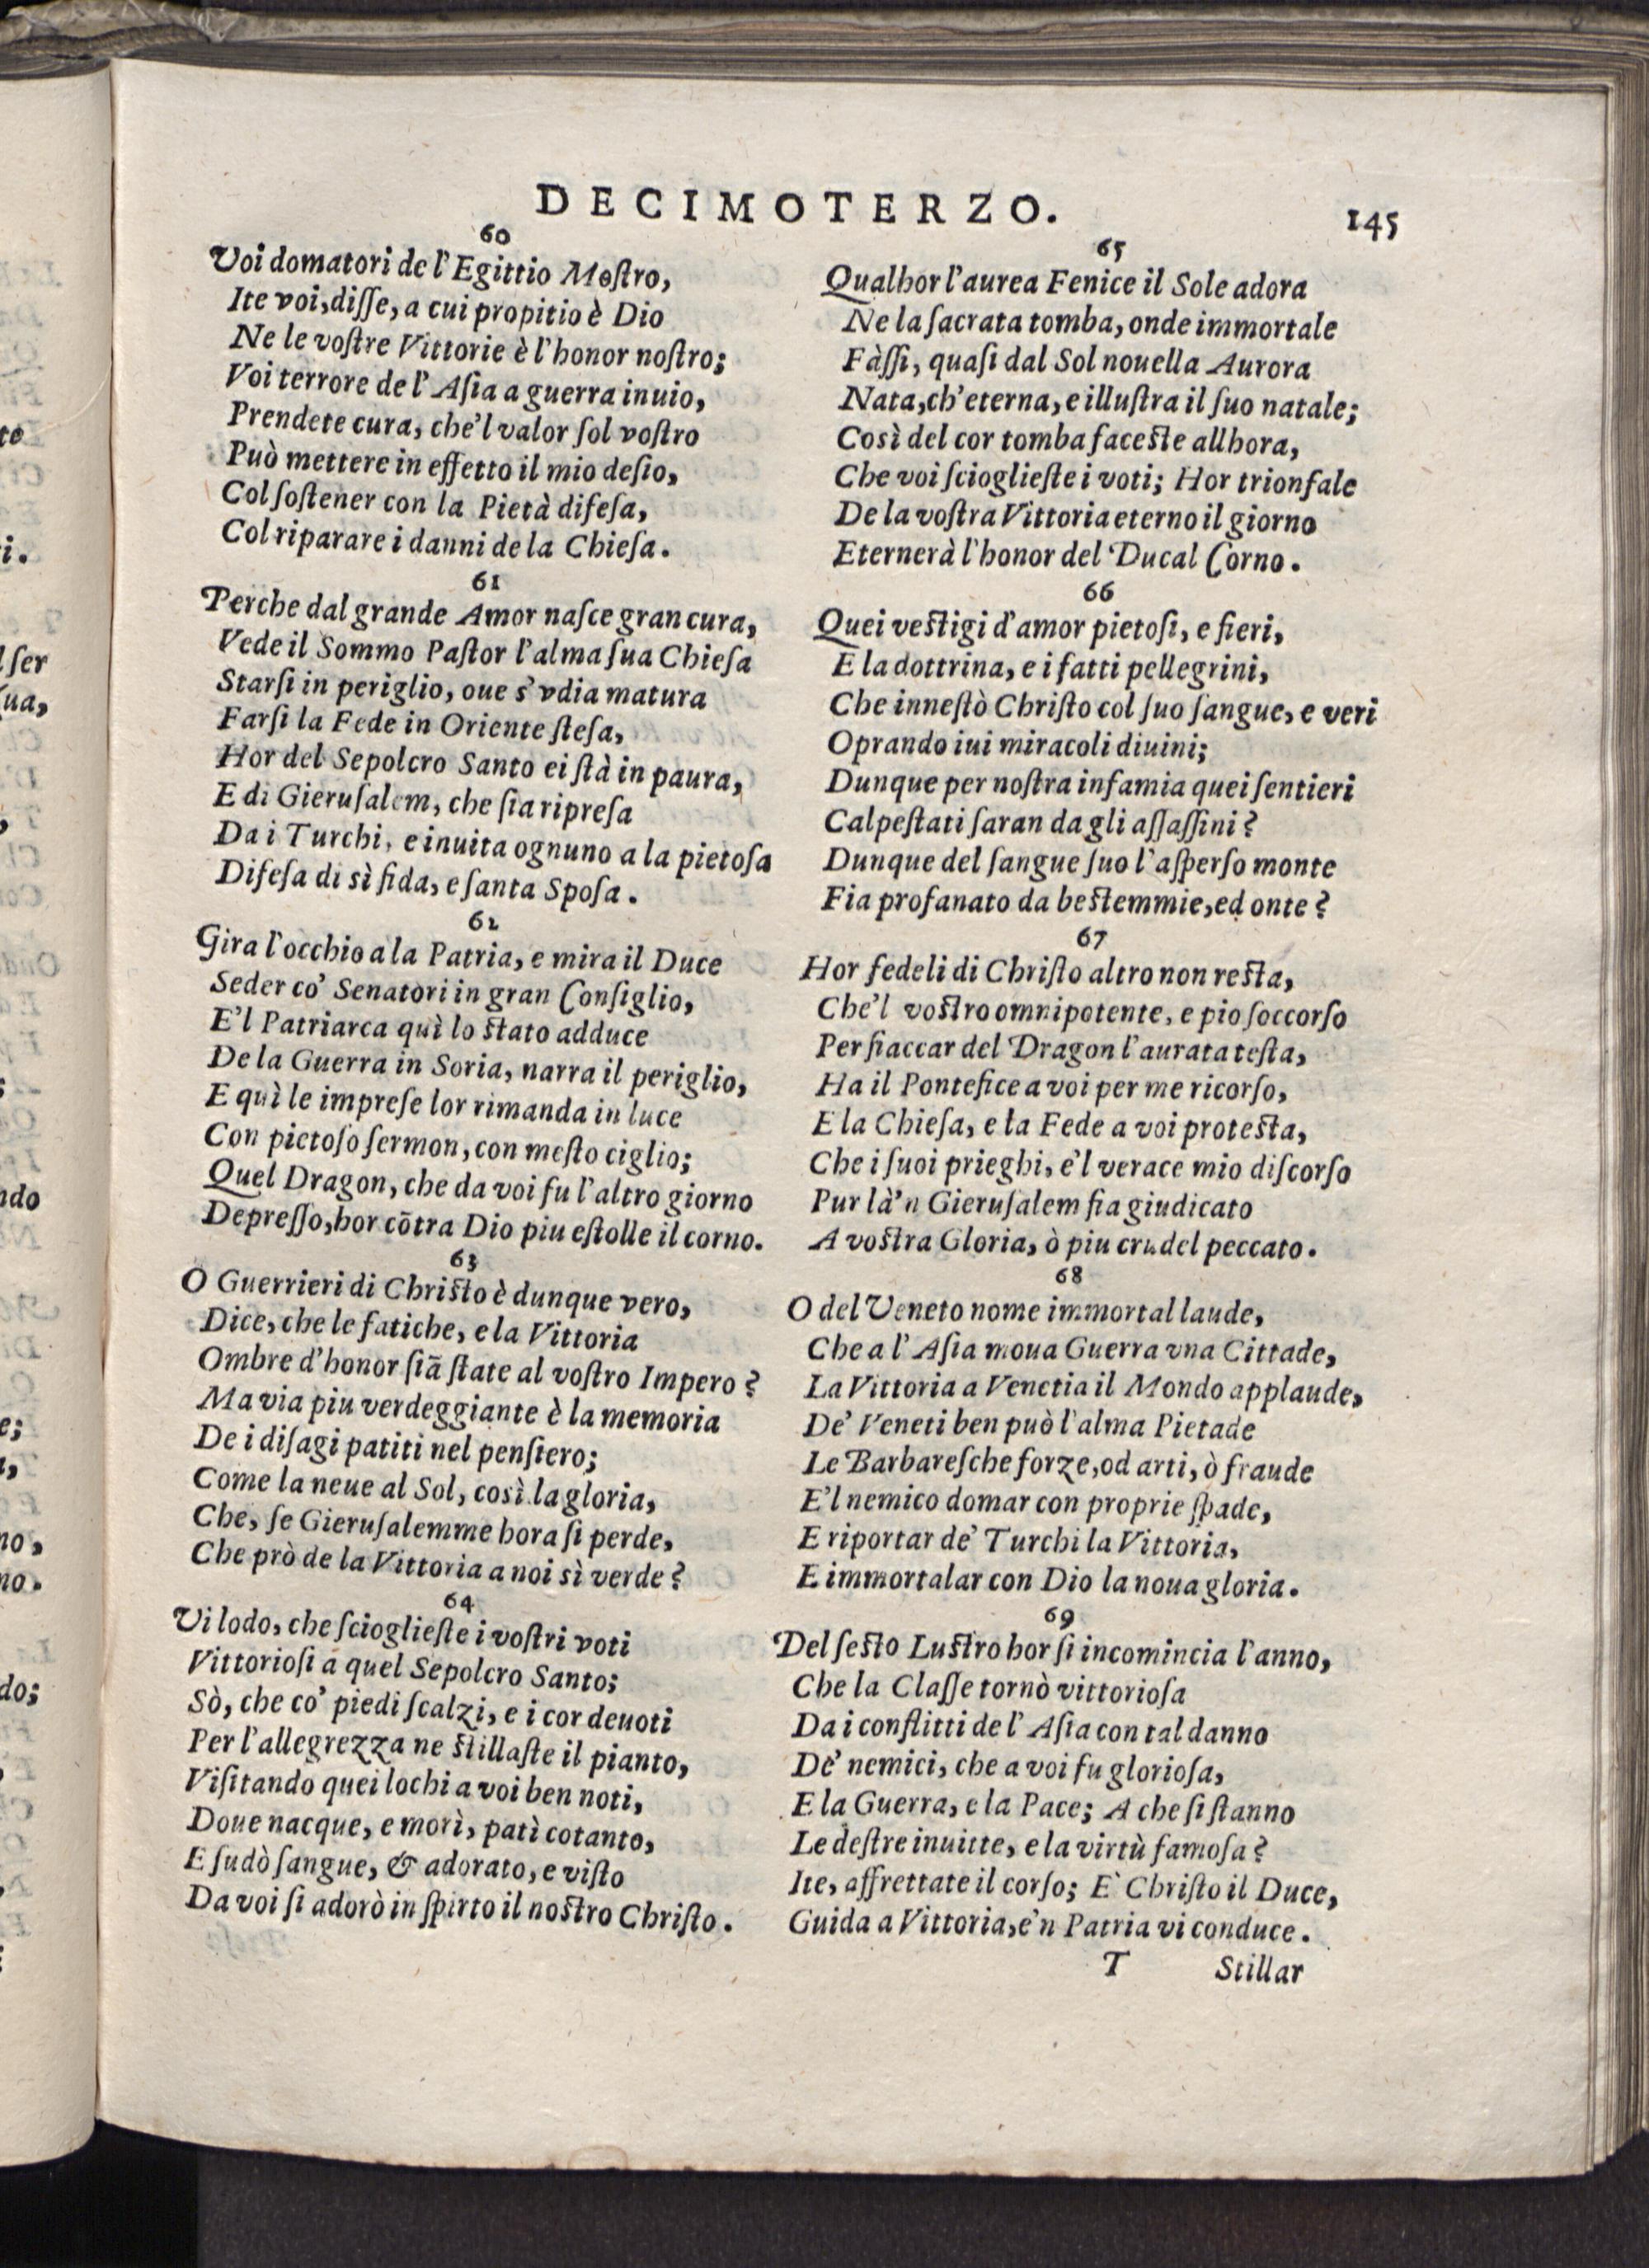 DECIMOTERZO.
145
60
Voi domatori de l'Egittio Mostro,
Ite voi, disse, a cui propitio è Dio
Ne le vostre Vittorie è l'honor nostro;
Voi terrore de l'Asia a guerra inuio,
Prendete cura, che'l valor sol vostro
Può mettere in effetto il mio desio,
Col sostener con la Pietà difesa,
Col riparare i danni de la Chiesa.
61
Perche dal grande Amor nasce gran cura,
Vede il Sommo Pastor l'alma sua Chiesa
Starsi in periglio, oue s'vdia matura
Farsi la Fede in Oriente stesa,
Hor del Sepolcro Santo ei stà in paura,
E di Gierusalem, che sia ripresa
Da i Turchi, e inuita ognuno a la pietosa
Difesa di sì fida, e santa Sposa.
62
Gira l'occhio a la Patria, e mira il Duce
Seder co' Senatori in gran Consiglio,
E'l Patriarca quì lo stato adduce
De la Guerra in Soria, narra il periglio,
E quì le imprese lor rimanda in luce
Con pietoso sermon, con mesto ciglio;
Quel Dragon, che da voi fu l'altro giorno
Depresso, hor cōtra Dio piu estolle il corno.
63
O Guerrieri di Christo è dunque vero,
Dice, che le fatiche, e la Vittoria
Ombre d'honor siā state al vostro Impero?
Ma via piu verdeggiante è la memoria
De i disagi patiti nel pensiero;
Come la neue al Sol, così la gloria,
Che, se Gierusalemme hora si perde,
Che prò de la Vittoria a noi sì verde?
64
Vi lodo, che scioglieste i vostri voti
Vittoriosi a quel Sepolcro Santo;
Sò, che co' piedi scalzi, e i cor deuoti
Per l'allegrezza ne stillaste il pianto,
Visitando quei lochi a voi ben noti,
Doue nacque, e morì, patì cotanto,
E sudò sangue, & adorato, e visto
Da voi si adorò in spirto il nostro Christo.
65
Qualhor l'aurea Fenice il Sole adora
Ne la sacrata tomba, onde immortale
Fàssi, quasi dal Sol nouella Aurora
Nata, ch'eterna, e illustra il suo natale;
Così del cor tomba faceste allhora,
Che voi scioglieste i voti; Hor trionfale
De la vostra Vittoria eterno il giorno
Eternerà l'honor del Ducal Corno.
66
Quei vestigi d'amor pietosi, e fieri,
E la dottrina, e i fatti pellegrini,
Che innestò Christo col suo sangue, e veri
Oprando iui miracoli diuini;
Dunque per nostra infamia quei sentieri
Calpestati saran da gli assassini?
Dunque del sangue suo l'asperso monte
Fia profanato da bestemmie, ed onte?
67
Hor fedeli di Christo altro non resta,
Che'l vostro omnipotente, e pio soccorso
Per fiaccar del Dragon l'aurata testa,
Ha il Pontefice a voi per me ricorso,
E la Chiesa, e la Fede a voi protesta,
Che i suoi prieghi, e'l verace mio discorso
Pur là'n Gierusalem fia giudicato
A vostra Gloria, ò piu crudel peccato.
68
O del Veneto nome immortal laude,
Che a l'Asia moua Guerra vna Cittade,
La Vittoria a Venetia il Mondo applaude,
De' Veneti ben può l'alma Pietade
Le Barbaresche forze, od arti, ò fraude
E'l nemico domar con proprie spade,
E riportar de' Turchi la Vittoria,
E immortalar con Dio la noua gloria.
69
Del sesto Lustro hor si incomincia l'anno,
Che la Classe tornò vittoriosa
Da i conflitti de l'Asia con tal danno
De' nemici, che a voi fu gloriosa,
E la Guerra, e la Pace; A che si stanno
Le destre inuitte, e la virtù famosa?
Ite, affrettate il corso; E` Christo il Duce,
Guida a Vittoria, e'n Patria vi conduce.
T Stillar